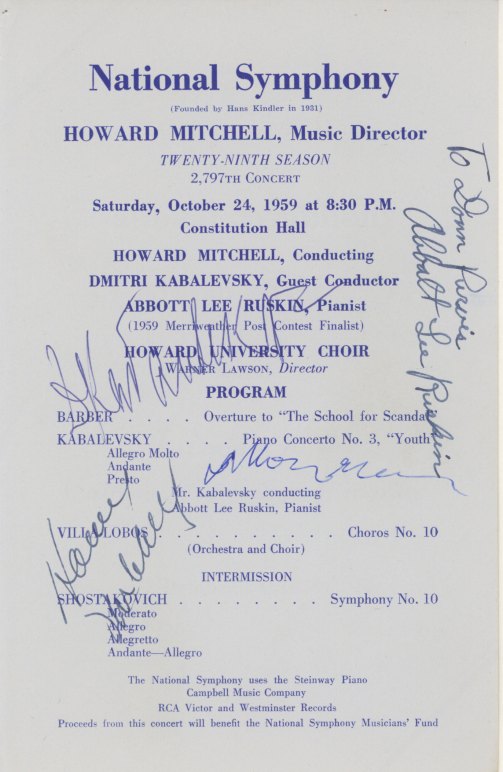 National Symphony
(Founded by Hans Kindler in 1931)
HOWARD MITCHELL, Music Director
TWENTY-NINTH SEASON
2,797TH CONCERT
Saturday, October 24, 1959 at 8:30 P.M.
Constitution Hall
HOWARD MITCHELL, Conducting
DMITRI KABALEVSKY, Guest Conductor
ABBOTT LEE RUSKIN, Pianist
(1959 Merriweather Post Contest Finalist)
HOWARD UNIVERSITY CHOIR
WARNER LAWSON, Director
PROGRAM
BARBER . . . . Overture to "The School for Scandal"
KABALEVSKY . . . . Piano Concerto No. 3, "Youth"
Allegro Molto
Andante
Presto
Mr. Kabalevsky conducting
Abbott Lee Ruskin, Pianist
VILLA LOBOS . . . . . . . . . . Choros No. 10
(Orchestra and Choir)
INTERMISSION
SHOSTAKOVICH . . . . . . . Symphony No. 10
Moderato
Allegro
Allegretto
Andante—Allegro
The National Symphony uses the Steinway Piano
Campbell Music Company
RCA Victor and Westminster Records
Proceeds from this concert will benefit the National Symphony Musicians' Fund
To Donn Purvis
Abbott Lee Ruskin
Howard
Mitchell